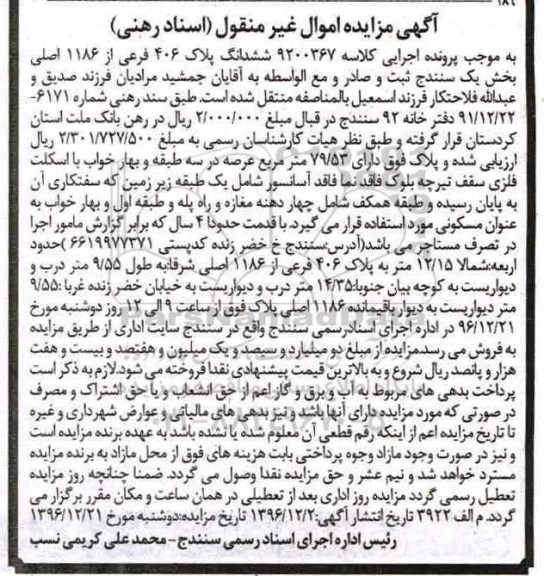 آگهی مزایده اموال غیر منقول (اسناد رهنی)
به موجب پرونده اجرایی کلاسه ۹۲۰۰۳۶۷ ششدانگ پلاک ۴۰۶ فرعی از ۱۱۸۶ اصلی
بخش یک سنندج ثبت و صادر و مع الواسطه به آقایان جمشید مرادیان فرزند صدیق و
عبدالله فلاحتکار فرزند اسمعیل بالمناصفه منتقل شده است. طبق سند رهنی شماره ۶۱۷۱-
۹۱/۱۲/۲۲ دفتر خانه ۹۲ سنندج در قبال مبلغ ۲/۰۰۰/۰۰۰ ریال در رهن بانک ملت استان
کردستان قرار گرفته و طبق نظر هیات کارشناسان رسمی به مبلغ ۲/۳۰۱/۷۲۷/۵۰۰ ریال
ارزیابی شده و پلاک فوق دارای ۷۹/۵۳ متر مربع عرصه در سه طبقه و بهار خواب با اسکلت
فلزی سقف تیرچه بلوک فاقد نما فاقد آسانسور شامل یک طبقه زیر زمین که سفتکاری آن
به پایان رسیده و طبقه همکف شامل چهار دهنه مغازه و راه پله و طبقه اول و بهار خواب به
عنوان مسکونی مورد استفاده قرار می گیرد. با قدمت حدودا ۴ سال که برابر گزارش مامور اجرا
در تصرف مستاجر می باشد(آدرس:سنندج خ خضر زنده کدپستی ۶۶۱۹۹۷۷۳۷۱ )حدود
اربعه:شمالا ۱۲/۱۵ متر به پلاک ۴۰۶ فرعی از ۱۱۸۶ اصلی شرقا:به طول ۹/۵۵ متر درب و
دیواریست به کوچه بیان جنوبا:۱۴/۳۵ متر درب و دیواریست به خیابان خضر زنده غربا :۹/۵۵
متر دیواریست به دیوار باقیمانده ۱۱۸۶ اصلی پلاک فوق از ساعت ۹ الی ۱۲ روز دوشنبه مورخ
۹۶/۱۲/۲۱ در اداره اجرای اسنادرسمی سنندج واقع در سنندج سایت اداری از طریق مزایده
به فروش می رسد.مزایده از مبلغ دو میلیارد و سیصد و یک میلیون و هفتصد و بیست و هفت
هزار و پانصد ریال شروع و به بالاترین قیمت پیشنهادی نقدا فروخته می شود.لازم به ذکر است
پرداخت بدهی های مربوط به آب و برق و گاز اعم از حق انشعاب و یا حق اشتراک و مصرف
در صورتی که مورد مزایده دارای آنها باشد و نیز بدهی های مالیاتی و عوارض شهرداری و غیره
تا تاریخ مزایده اعم از اینکه رقم قطعی آن معلوم شده یا نشده باشد به عهده برنده مزایده است
و نیز در صورت وجود مازاد وجوه پرداختی بابت هزینه های فوق از محل مازاد به برنده مزایده
مسترد خواهد شد و نیم عشر و حق مزایده نقدا وصول می گردد. ضمنا چنانچه روز مزایده
تعطیل رسمی گردد مزایده روز اداری بعد از تعطیلی در همان ساعت و مکان مقرر برگزار می
گردد. م الف ۳۹۲۲ تاریخ انتشار آگهی:۱۳۹۶/۱۲/۲ تاریخ مزایده:دوشنبه مورخ ۱۳۹۶/۱۲/۲۱
رئیس اداره اجرای اسناد رسمی سنندج-محمد علی کریمی نسب